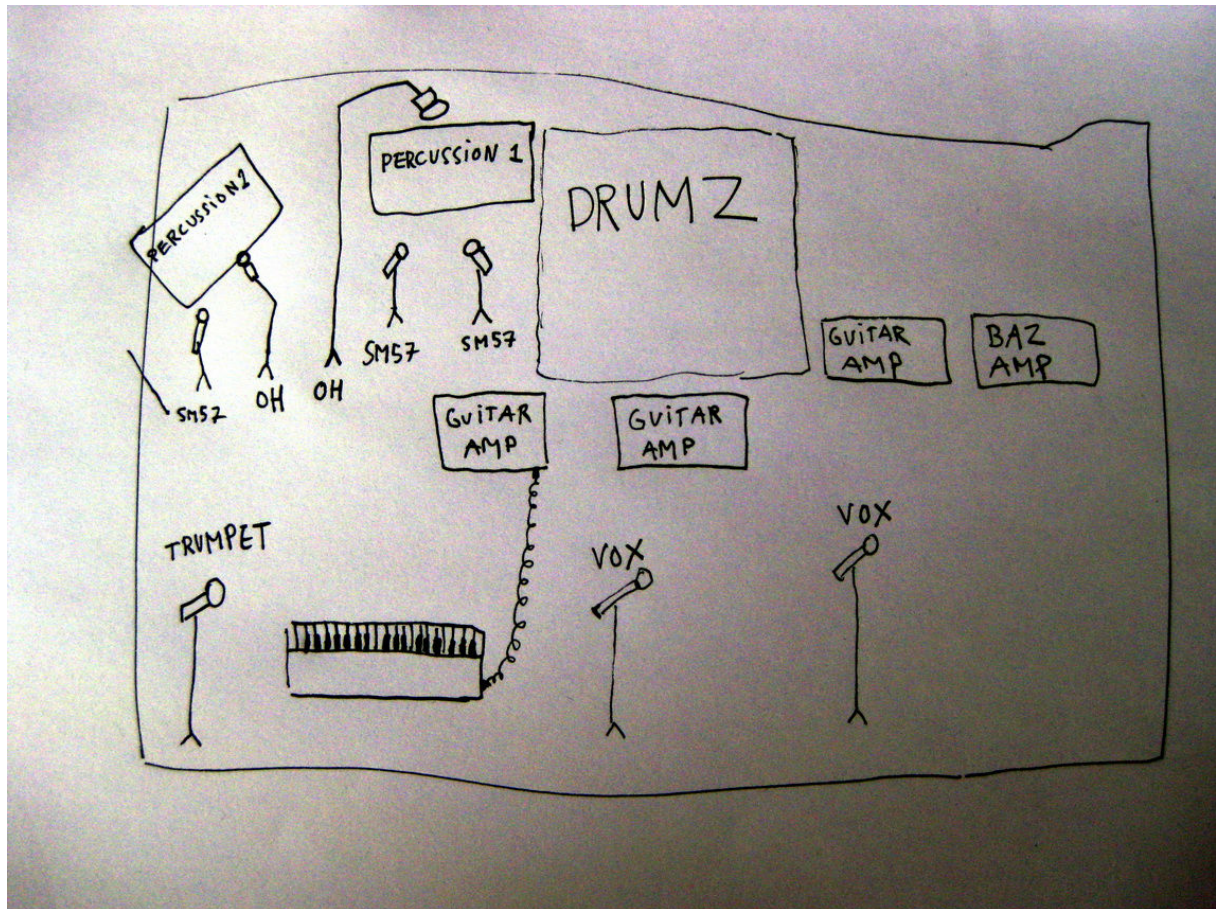 PERCUSSION 1
PERCUSSION 2
DRUMZ
SM57
OH
OH
SM57
SM57
GUiTAR
AMP
BAZ
AMP
GUiTAR
AMP
GUiTAR
AMP
TRUMPET
VOX
VOX